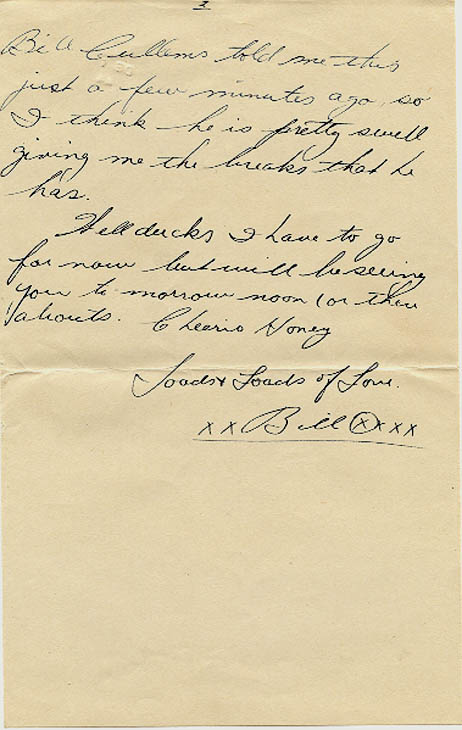 3
Bill Cullems told me this
just a few minutes ago, so
I think he is pretty swell
giving me the breaks that he
has.
Well ducks I have to go
for now but will be seeing
you to-morrow noon (or there
abouts. Cheerio Honey
Loads & Loads of Love.
xx Bill xxxx